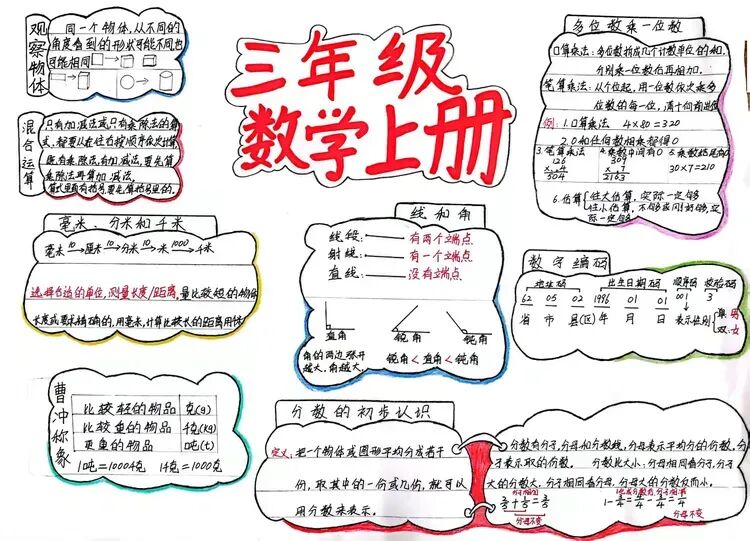 三年级
数学上册
观察物体
同一个物体,从不同的
角度看到的形状可能不同也
可能相同
混合运算
只有加减法或只有乘除法的算
式,都要从左往右按顺序依次计算
既有乘除法,有加减法,要先算
乘除法再算加减法.
算式里有括号,要先算括号里的.
毫米、分米和千米
毫米 10→ 厘米 10→ 分米 10→ 米 1000→ 千米
选择合适的单位,测量长度/距离,量比较短的物体
长度或要求精确的,用毫米,计算比较长的距离用千米
曹冲称象
比较轻的物品 克(g)
比较重的物品 千克(kg)
更重的物品 吨(t)
1吨=1000千克 1千克=1000克
线和角
线段: 有两个端点
射线: 有一个端点
直线: 没有端点
直角 锐角 钝角
角的两边张开
越大,角越大.
锐角<直角<钝角
多位数乘一位数
口算乘法:多位数拆成几个计数单位的和,
分别乘一位数后再相加.
笔算乘法:从个位起,用一位数依次乘多
位数的每一位,满十向前进
例:1.口算乘法 4×80=320
2.0和任何数相乘都得0
3.笔算乘法
126
×.4
504
4.乘数中间有0
309
×.7
2163
5.乘数末尾有0
30×7=210
6.估算
往大估算,实际一定够
往小估算,不够或刚好够,实
际一定够
数字编码
地址码 出生日期码 顺序码 校验码
62 05 02 1996 01 01 001 3
省 市 县(区) 年 月 日 表示性别
单:男
双:女
分数的初步认识
定义:把一个物体或图形平均分成若干
份,取其中的一份或几份,就可以
用分数来表示.
分数有分子,分母和分数线,分母表示平均分的份数,分
子表示取的份数. 分数比大小:分母相同看分子,分子
大的分数大,分子相同看分母,分母大的分数反而小.
分子相加
分母不变
分子相减
分母不变